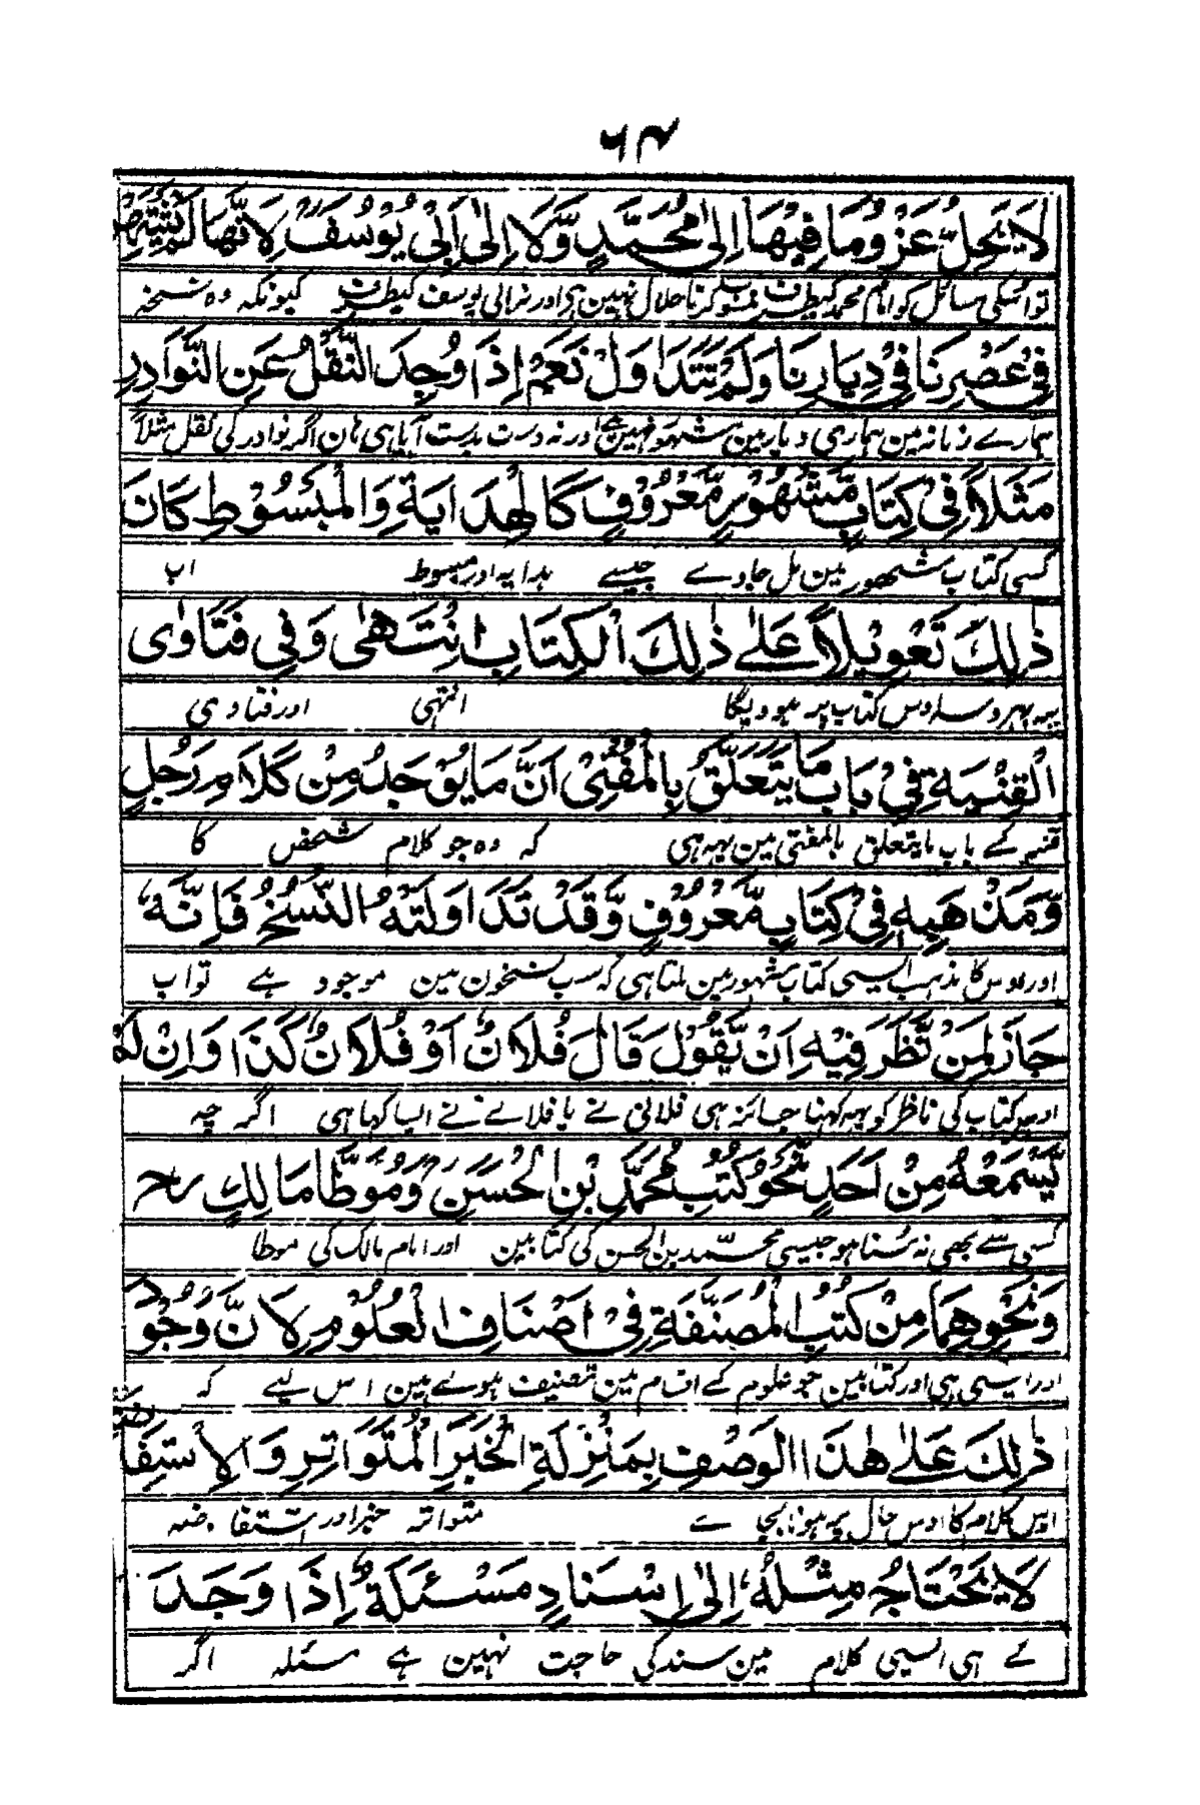 ۶۴
لَا يَحِلُّ عَزْوُ مَا فِيْهَا اِلٰى مُحَمَّدٍ وَّلَا اِلٰى اَبِيْ يُوْسُفَ لِاَنَّهَا لَمْ تَشْتَهِرْ
تو اسکی مسائل کو امام محمد کیطرف منسوب کرنا حلال نہین ہی اور نہ ابی یوسف کیطرف کیونکہ وہ نسخہ
فِيْ عَصْرِنَا فِيْ دِيَارِنَا وَلَمْ تَتَدَاوَلْ نَعَمْ اِذَا وُجِدَ النَّقْلُ عَنِ النَّوَادِرِ
ہمارے زمانہ مین ہماری دیار مین مشہور نہین ہے اور نہ دست بدست آیا ہی ہان اگر نوادر کی نقل مثلاً
مَثَلًا فِيْ كِتَابٍ مَّشْهُوْرٍ مَّعْرُوْفٍ كَالْهِدَايَةِ وَالْمَبْسُوْطِ كَانَ
کسی کتاب مشہور مین مل جاوے جیسے ہدایہ اور مبسوط اب
ذٰلِكَ تَعْوِيْلًا عَلٰى ذٰلِكَ الْكِتَابِ اِنْتَهٰى وَفِيْ فَتَاوٰى
یہہ بہروسا اوس کتاب پر ہوویگا انتہی اور فتاوی
الْقِنْيَةِ فِيْ بَابِ مَا يَتَعَلَّقُ بِالْمُفْتِيْ اَنَّ مَا يُوْجَدُ مِنْ كَلَامِ رَجُلٍ
قنیہ کے باب ما یتعلق بالمفتی مین یہہ ہی کہ وہ جو کلام شخص کا
وَّمَذْهَبِهٖ فِيْ كِتَابٍ مَّعْرُوْفٍ وَّقَدْ تَدَاوَلَتْهُ النُّسَخُ فَاِنَّهٗ
اور اوس کا مذہب ایسی کتاب مشہور مین ملتا ہی کہ سب نسخون مین موجود ہے تو اب
جَازَ لِمَنْ نَّظَرَ فِيْهِ اَنْ يَّقُوْلَ قَالَ فُلَانٌ اَوْ فُلَانٌ كَذَا وَاِنْ لَمْ
اوس کتاب کی ناظر کو یہہ کہنا جائز ہی فلانی نے یا فلانے نے ایسا کہا ہی اگر چہ
يَّسْمَعْهُ مِنْ اَحَدٍ نَحْوُ كُتُبِ مُحَمَّدِ بْنِ الْحَسَنِ وَمُوَطَّا مَالِكٍ رح
کسی سے بھی نہ سنا ہو جیسی محمد بن الحسن کی کتابین اور امام مالک کی موطا
وَنَحْوِهِمَا مِنْ كُتُبِ الْمُصَنَّفَةِ فِيْ اَصْنَافِ الْعُلُوْمِ لِاَنَّ وُجُوْدَ
اور ایسی ہی اور کتابین جو علوم کے اقسام مین تصنیف ہوے ہین اس لیے کہ
ذٰلِكَ عَلٰى هٰذَا الْوَصْفِ بِمَنْزِلَةِ الْخَبَرِ الْمُتَوَاتِرِ وَالْاِسْتِفَاضَةِ
اوس کلام کا اوس حال پر ہونا بجا سے متواتر خبر اور استفاضہ
لَا يَحْتَاجُ مِثْلُهٗ اِلٰى اِسْنَادٍ مَسْئَلَةٌ اِذَا وَجَدَ
کے ہی ایسی کلام مین سند کی حاجت نہین ہے مسئلہ اگر